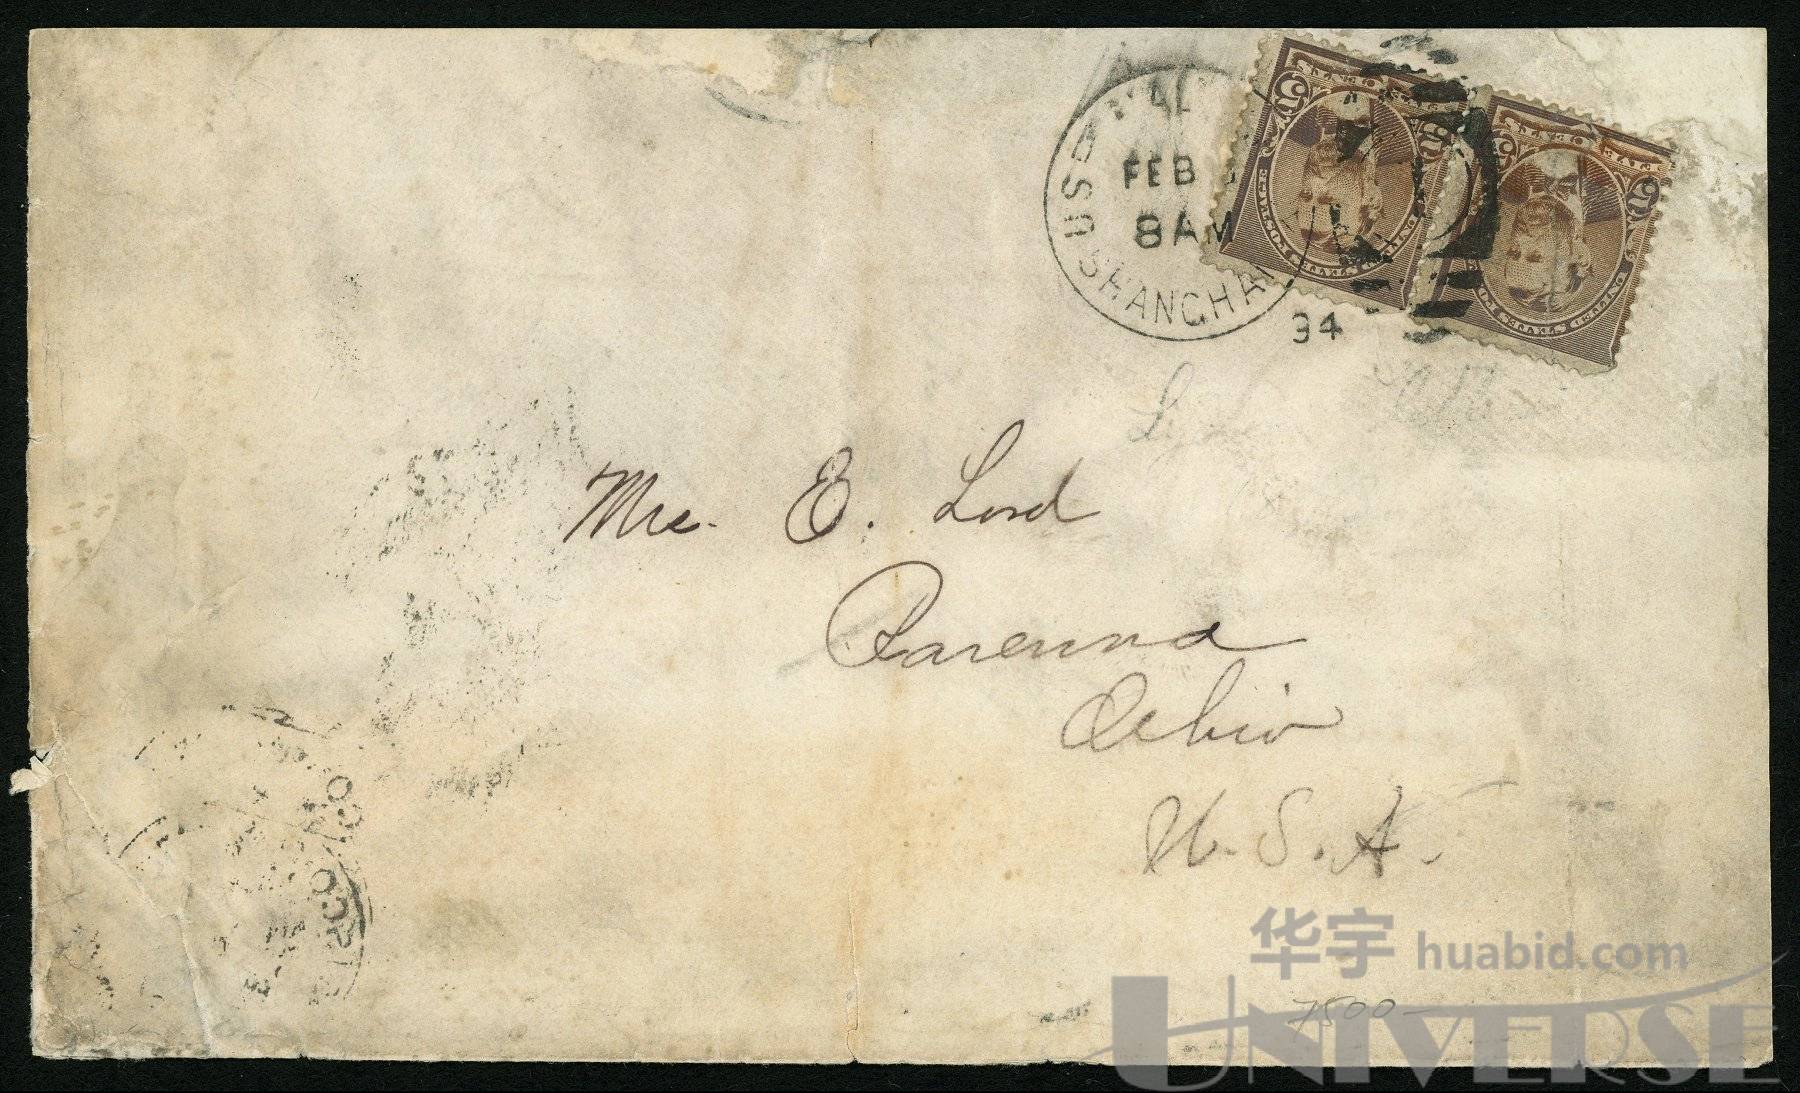 FEB
8 AM
SHANGHAI
94
Mrs. E. Lord
Ravenna
Ohio
U.S.A.
华宇 huabid.com
7500-
UNIVERSE